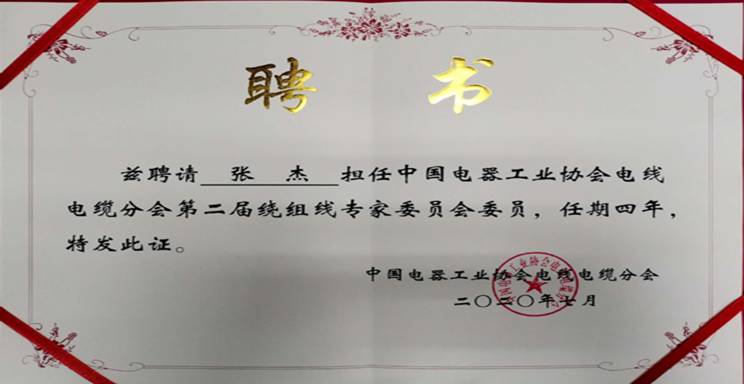 聘书
兹聘请 张 杰 担任中国电器工业协会电线
电缆分会第二届绕组线专家委员会委员，任期四年，
特发此证。
中国电器工业协会电线电缆分会
二〇二〇年七月